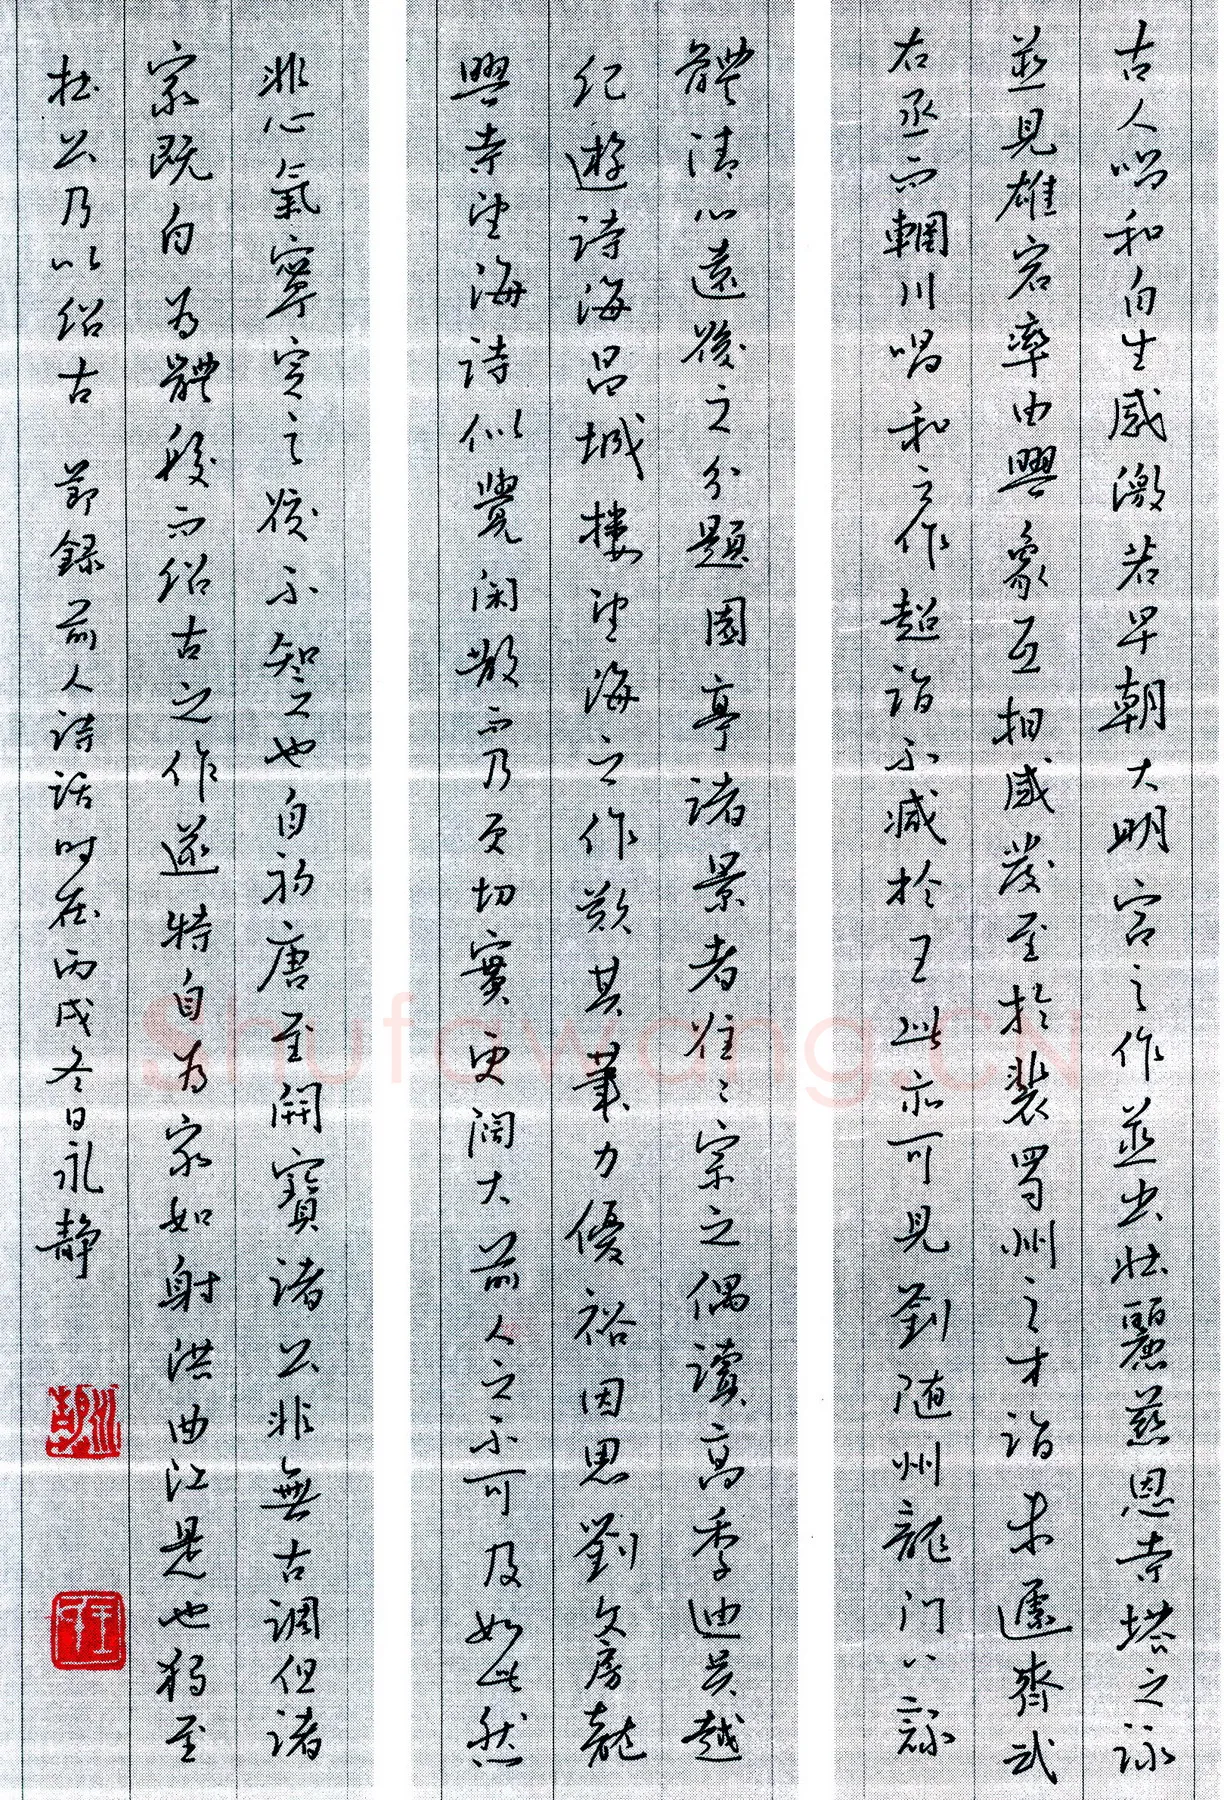 古人唱和自生感激若早朝大明宫之作並出壯麗慈恩寺塔之詠
並見雄宕率由興象互相感發至於裴蜀州之才詣未遽齊武
右丞而輞川唱和之作超詣不減於王此亦可見劉随州龍门八詠
體清心遠後之分題園亭諸景者往〻宗之偶讀高季迪吳越
纪遊詩海昌城樓望海之作歎其筆力優裕因思劉文房龍
興寺望海詩似覺閑散而乃更切實更阔大前人之不可及如此然
非心氣寧定之後不智之也自初唐至開寶諸公非無古調但諸
家既自為體段而紹古之作遂特自為家如射洪曲江是也獨至
杜公乃以紹古 節録前人詩話时在丙戌冬日永静
Shufawang.CN